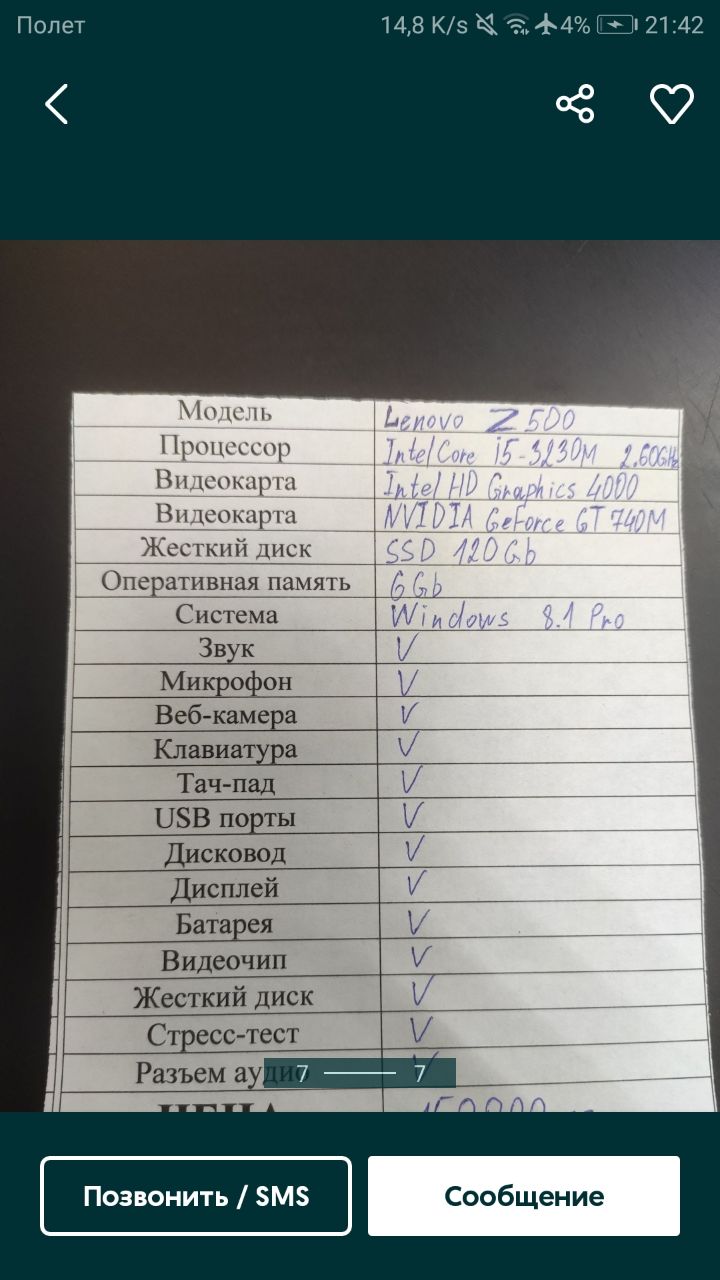 Полет 14,8 K/s 4% 21:42
Модель Lenovo Z500
Процессор Intel Core i5-3230M 2.60GHz
Видеокарта Intel HD Graphics 4000
Видеокарта NVIDIA GeForce GT 740M
Жесткий диск SSD 120Gb
Оперативная память 6Gb
Система Windows 8.1 Pro
Звук V
Микрофон V
Веб-камера V
Клавиатура V
Тач-пад V
USB порты V
Дисковод V
Дисплей V
Батарея V
Видеочип V
Жесткий диск V
Стресс-тест V
Разъем аудио V
7 7
ЦЕНА
Позвонить / SMS Сообщение